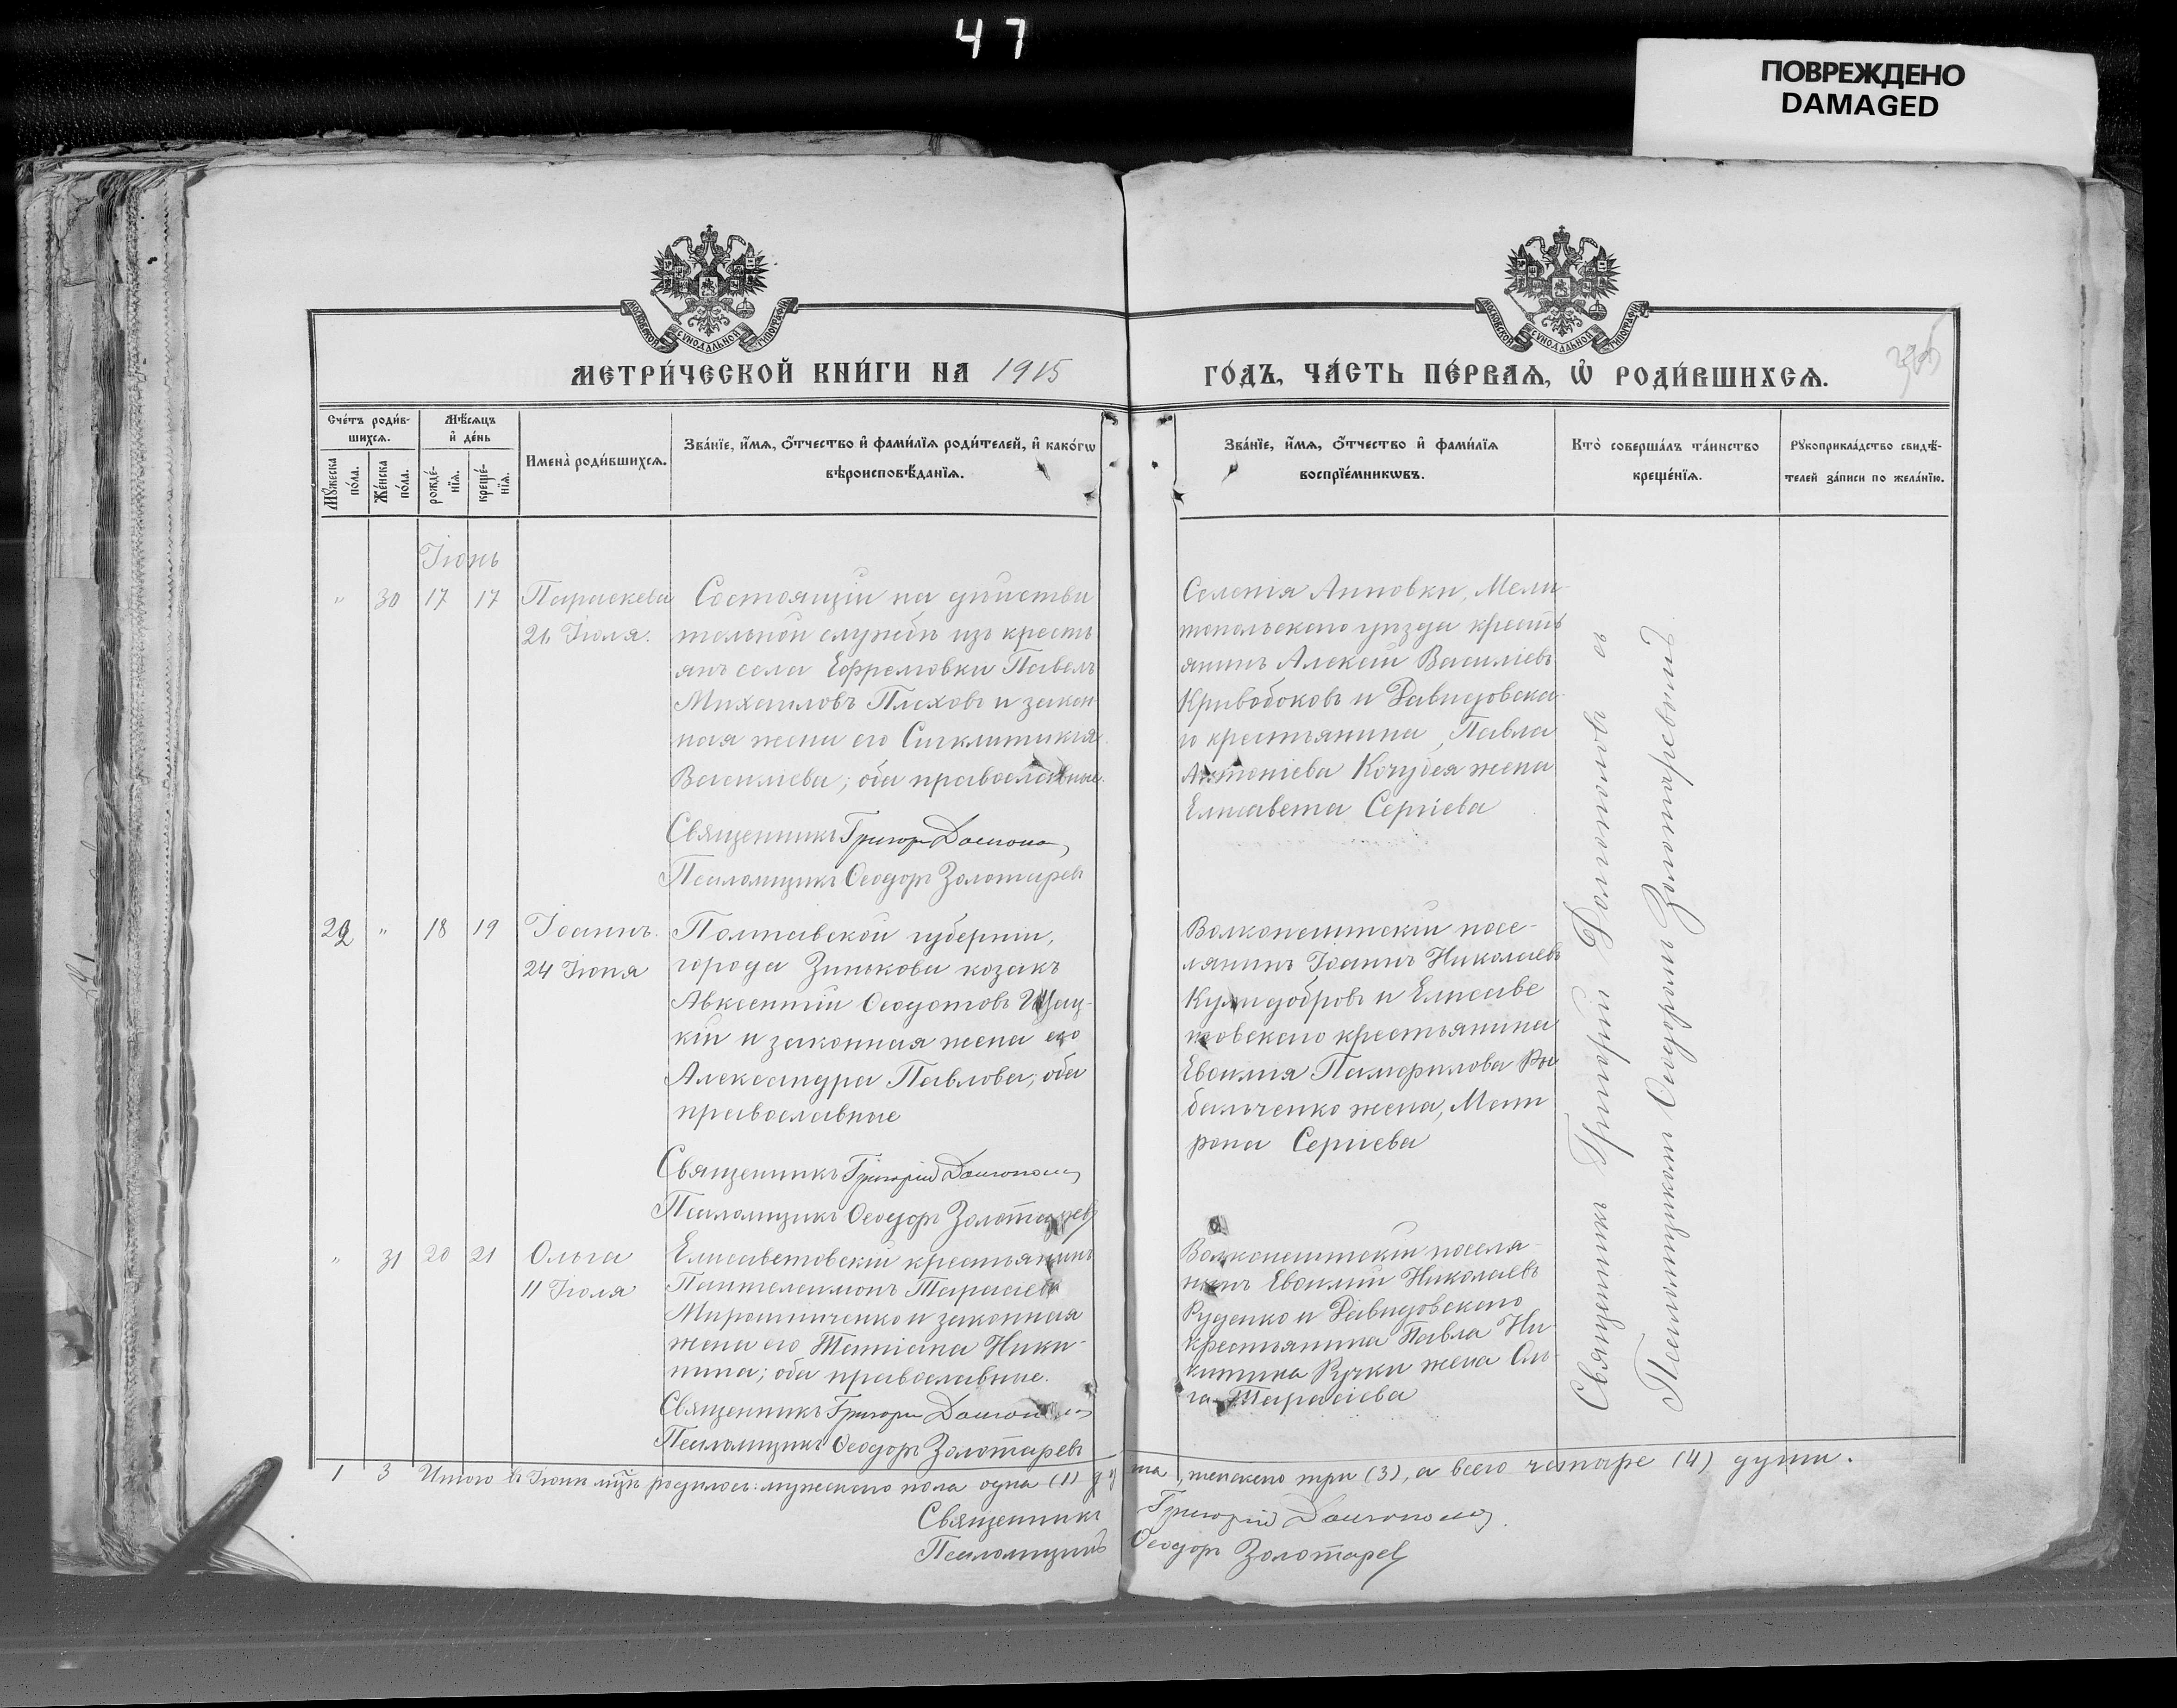 47
ПОВРЕЖДЕНО
DAMAGED
МЕТРИ́ЧЕСКОЙ КНИ́ГИ НА 1915
ГО́ДЪ, ЧА́СТЬ ПЕ́РВАѦ, Ѡ РОДИ́ВШИХСѦ.
Сче́тъ роди́в-
шихсѧ.
Мѣ́сѧцъ
и҆ де́нь
Мꙋ́жеска
по́ла.
Же́нска
по́ла.
рожде́-
нїѧ.
креще́-
нїѧ.
Имена̀ роди́вшихсѧ.
Зва́нїе, и҆́мѧ, ѻ҆́тчество и҆ фами́лїѧ роди́телей, и҆ како́гѡ
вѣроисповѣ́данїѧ.
Зва́нїе, и҆́мѧ, ѻ҆́тчество и҆ фами́лїѧ
воспрїе́мникѡвъ.
Кто̀ соверша́лъ та́инство
креще́нїѧ.
Рꙋкоприкла́дство свидѣ́-
телей за́писи по жела́нїю.
Іюнь
" 30 17 17 Параскева
21 Іюля.
Состоящій на дѣйстви
тельной службѣ изъ кресть
янъ села Ефремовки Павелъ
Михаиловъ Плеховъ и закон
ная жена его Сигклитикия
Василіева; оба православные.
Священникъ Григорій
Псаломщикъ Ѳеодоръ Золотаревъ
Селенія Анновки, Мели-
топольскаго уѣзда кресть
янинъ Алексій Василіевъ
Кривобоковъ и Давидовска-
го крестьянина Павла
Антоніева Кочубея жена
Елисавета Сергіева
22 " 18 19 Іоаннъ.
24 Іюня
Полтавской губерніи,
города Зинькова козакъ
Авксентій Ѳеодотовъ
кій и законная жена его
Александра Павлова; оба
православные
Священникъ Григорій Долгополовъ
Псаломщикъ Ѳеодоръ Золотаревъ
Волконештскій посе-
лянинъ Іоаннъ Николаевъ
и Елисаве
товскаго крестьянина
Евѳимія Памфилова Ры
бальченко жена, Мат
рона Сергіева
" 31 20 21 Ольга
11 Іюля
Елисаветовскій крестьянинъ
Пантелеимонъ Тарасіевъ
Мирошниченко и законная
жена его Татіана Ники-
тина; оба православные.
Священникъ Григорій Долгополовъ
Псаломщикъ Ѳеодоръ Золотаревъ
Волконештскій поселя-
нинъ Евѳимій Николаевъ
Руденко и Давидовскаго
крестьянина Павла Ни-
китина Ручки жена Оль-
га Тарасіева
Священникъ Григорій Долгополовъ съ
Псаломщикомъ Ѳеодоромъ Золотаревымъ
1 3 Итого въ Іюнѣ мѣсѣ родилось: мужескаго пола одна (1) душа, женскаго три (3), а всего четыре (4) души.
Священникъ Григорій Долгополовъ
Псаломщикъ Ѳеодоръ Золотаревъ